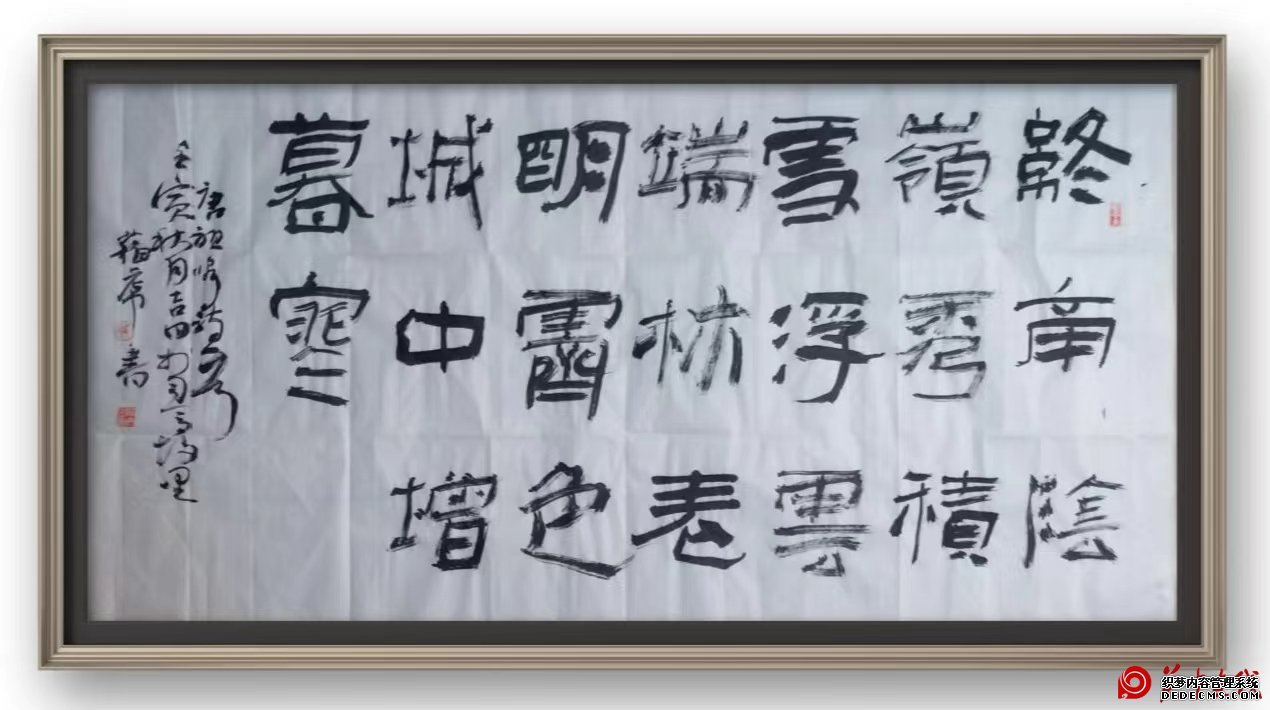 終南陰
嶺秀積
雪浮雲
端林表
明霽色
城中增
暮寒
唐祖咏詩
壬寅秋月吉日
書
织梦内容管理系统
DEDECMS.COM